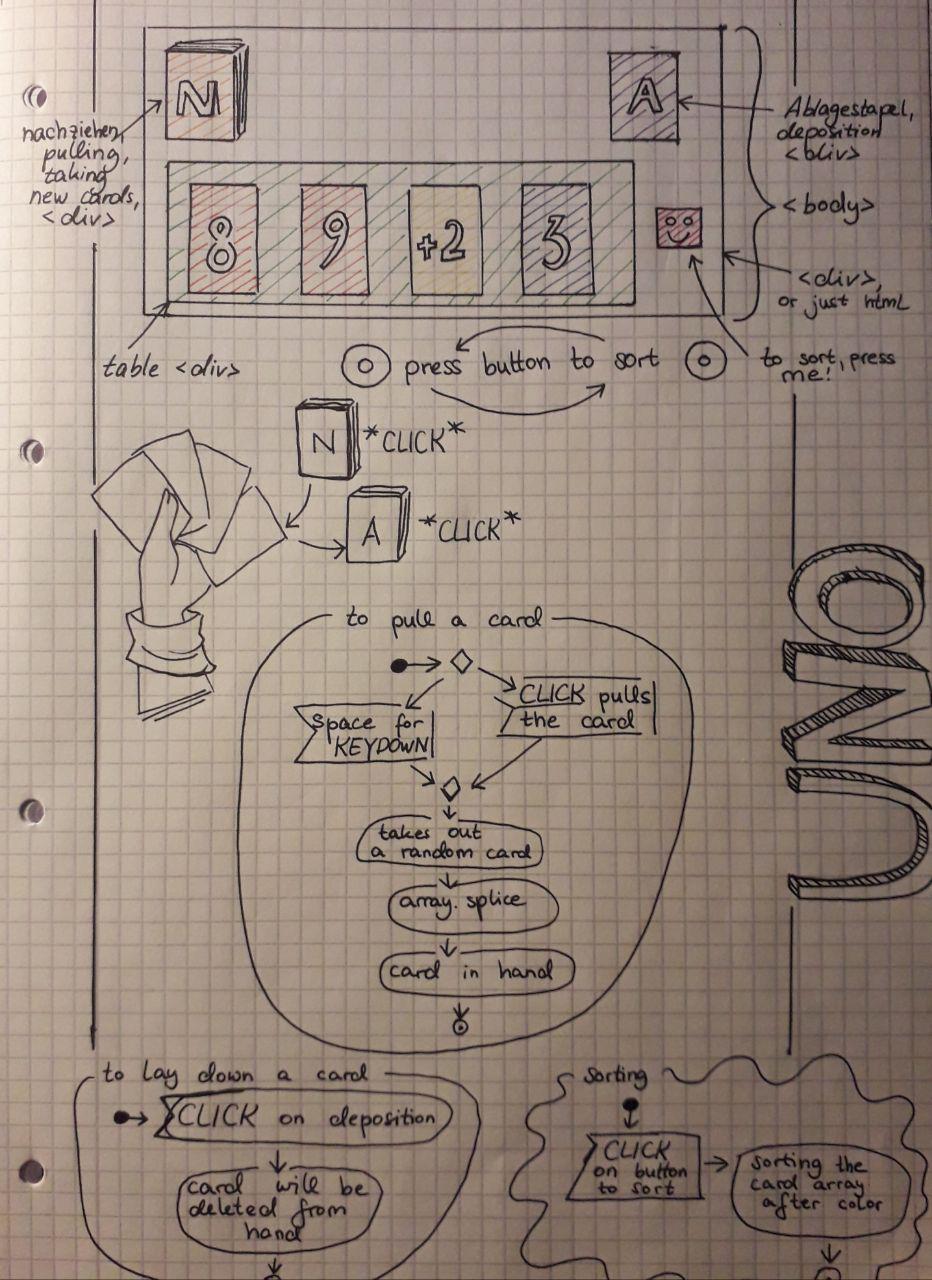 N
A
nachziehen,
pulling,
taking
new cards,
<div>
Ablagestapel,
deposition
<div>
<body>
8
9
+2
3
<div>,
or just html
table <div>
press button to sort
to sort, press
me!
N
*CLICK*
A
*CLICK*
UNO
to pull a card
CLICK pulls
the card
Space for
KEYDOWN
takes out
a random card
array.splice
card in hand
to lay down a card
CLICK on deposition
card will be
deleted from
hand
sorting
CLICK
on button
to sort
sorting the
card array
after color